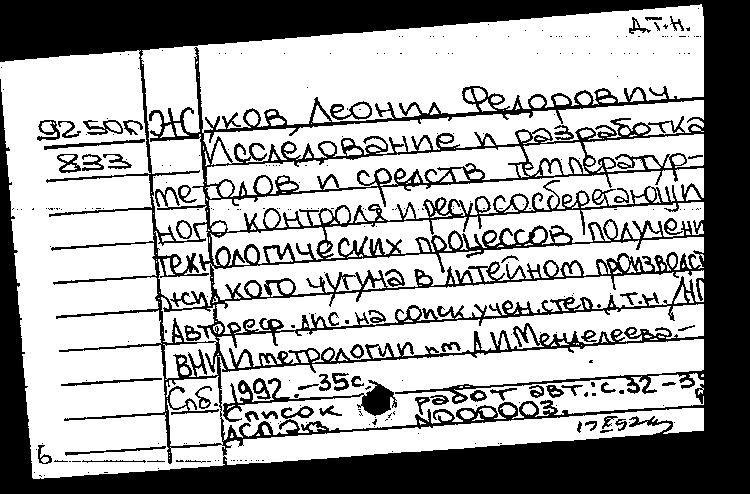 Д.Т.Н.
92.500 Жуков, Леонид Федорович.
833 Исследование и разработка
методов и средств температур-
ного контроля и ресурсосберегающи
технологических процессов получени
жидкого чугуна в литейном производс
Автореф. дис. на соиск. учен. степ. д.т.н. /НП
ВНИИ метрологии им. Д.И. Менделеева.-
Спб. 1992.-35с.
Список работ авт.: с.32-35
ДСП. Экз. N000003.
Б